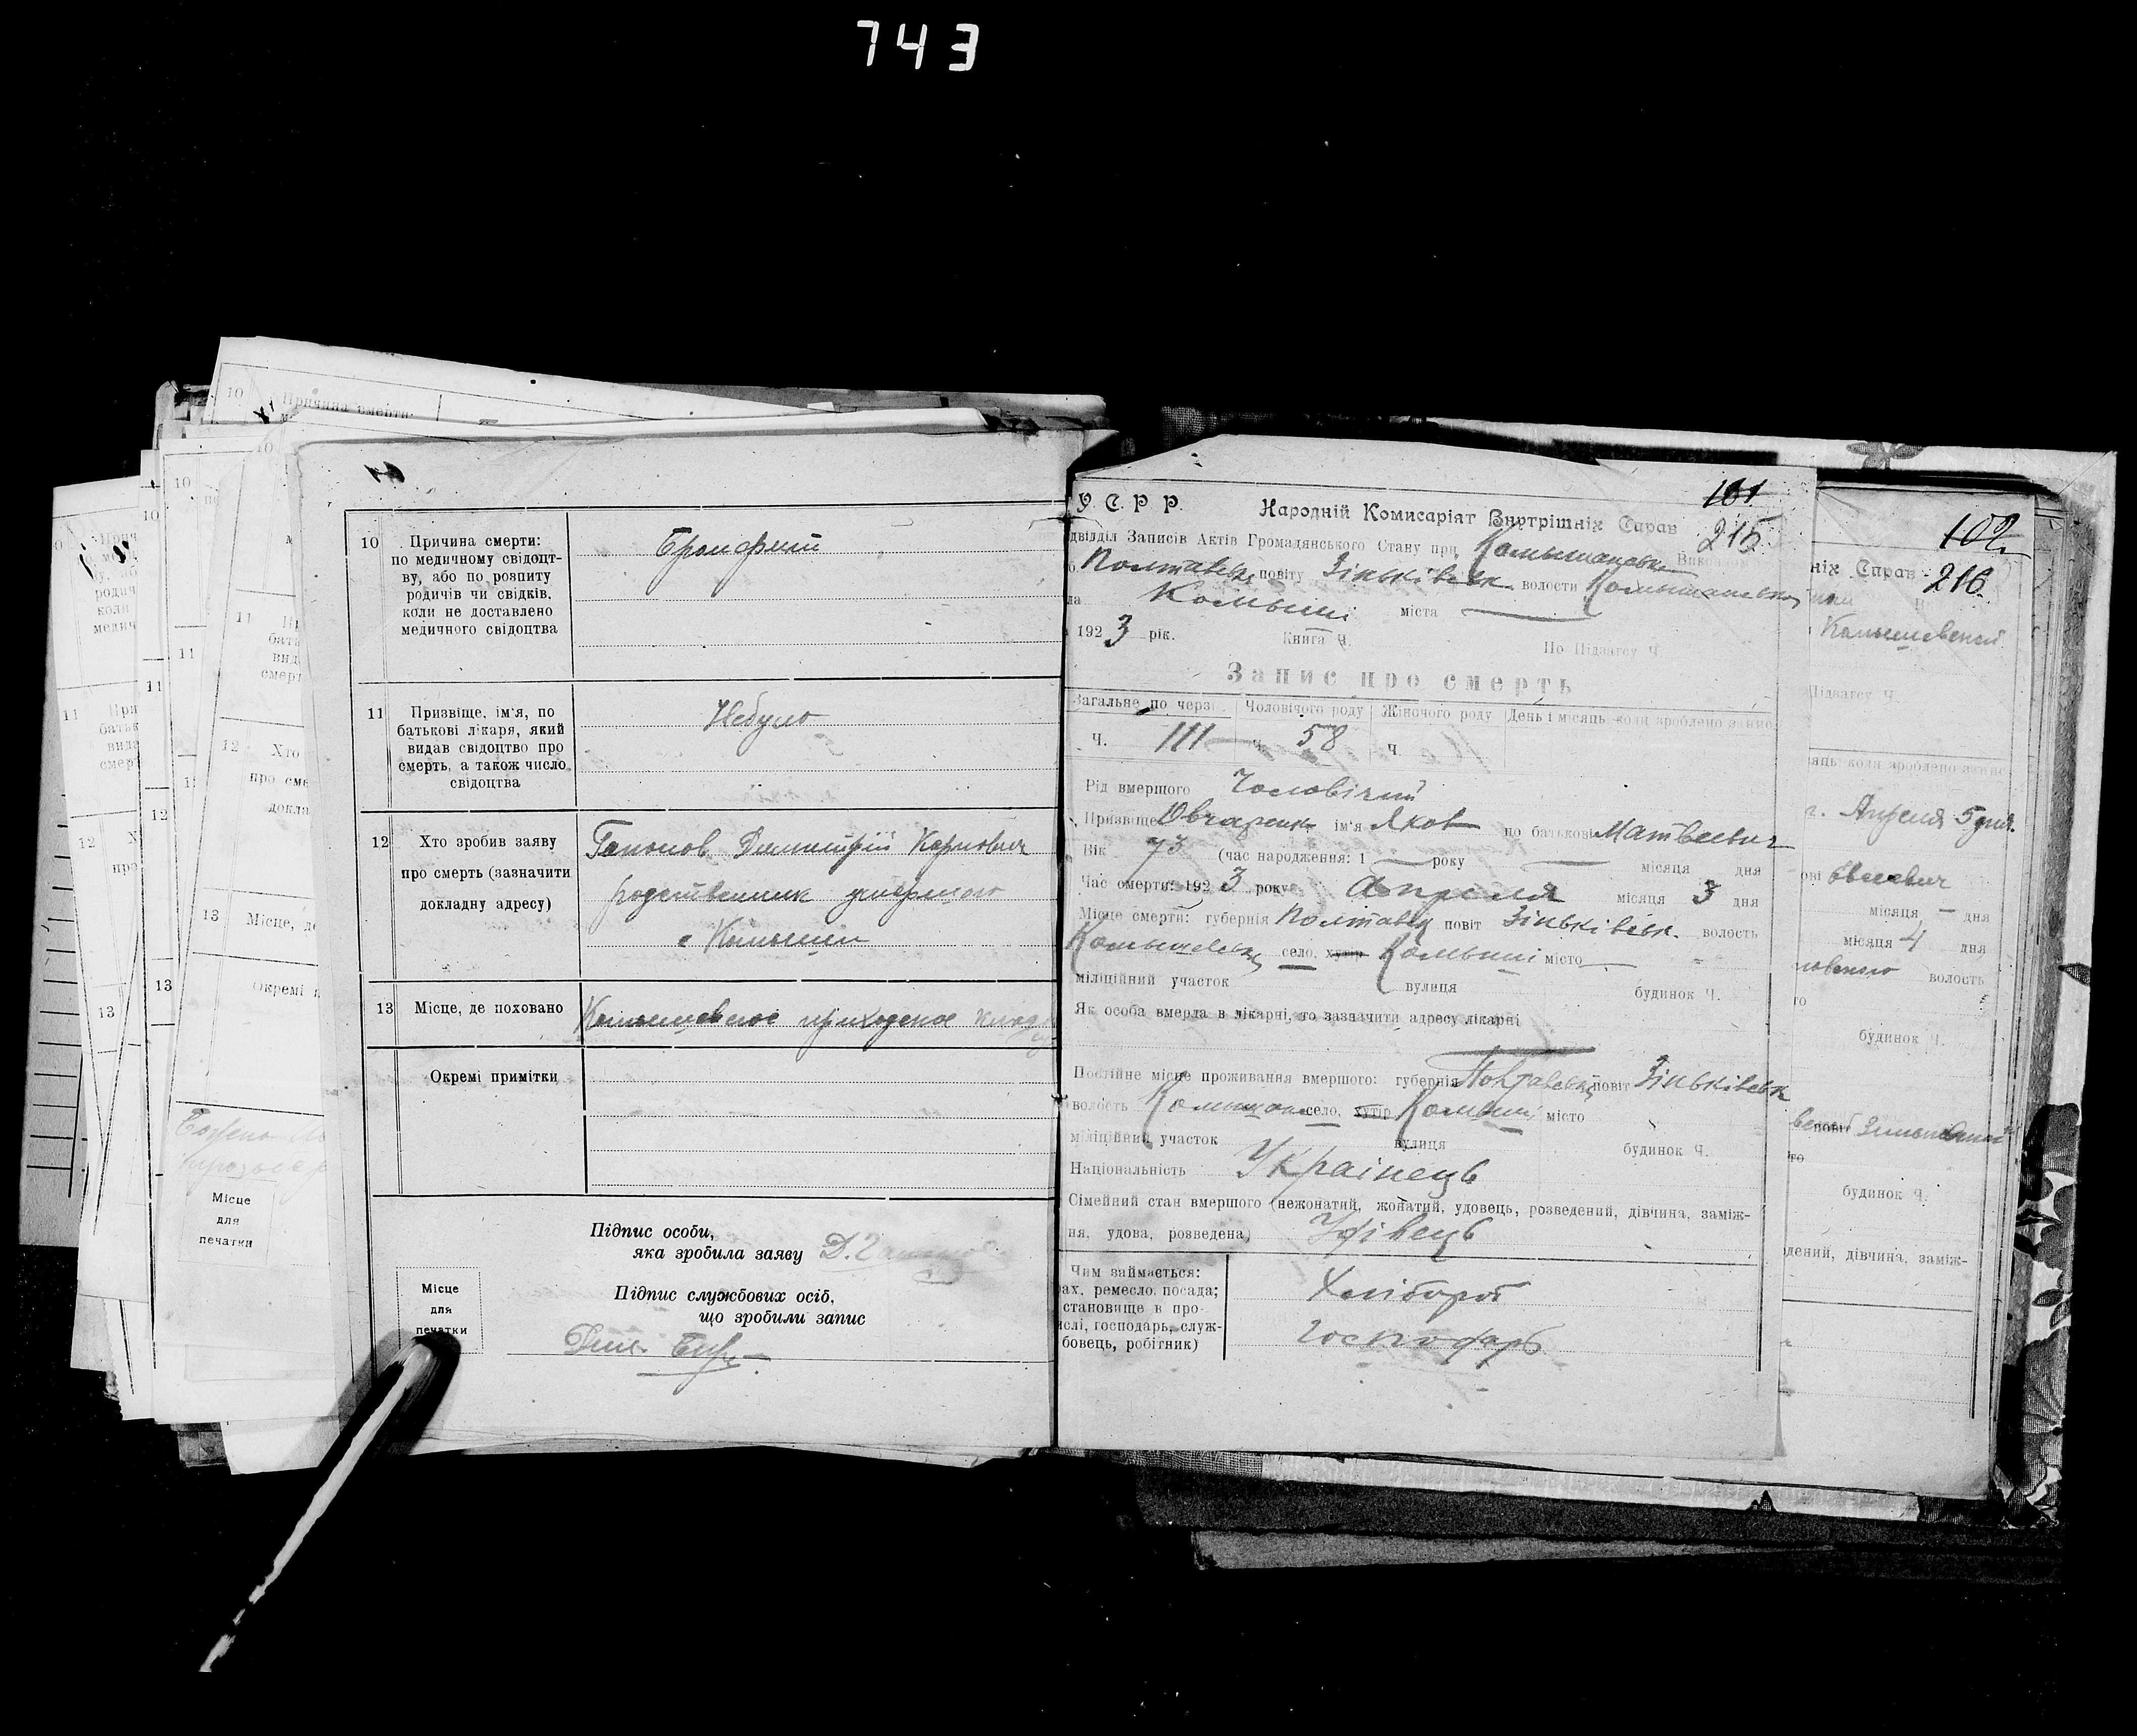 743
10
Причина смерти:
по медичному свідоцт-
ву, або по розпиту
родичів чи свідків,
коли не доставлено
медичного свідоцтва
11
Призвіще, ім'я, по
батькові лікаря, який
видав свідоцтво про
смерть, а також число
свідоцтва
Небуло
12
Хто зробив заяву
про смерть (зазначити
докладну адресу)
Гапонов Димитрій Карпович
родственник умершого
с Комыши
13
Місце, де поховано
Комышевское приходское кладб
Окремі примітки
Підпис особи,
яка зробила заяву
Місце
для
печатки
Підпис службових осіб,
що зробили запис
101
У. С. Р. Р. Народній Комисаріят Внутрішніх Справ
215
двідділ Записів Актів Громадянського Стану при Комышанськ Викон
Полтавськ повіту Зіньківськ волости Комышанськ
ла Комыші міста —
1923 рік. Книга Ч. По Підзагсу Ч.
Запис про смерть
Загальне по черзі Чоловічого роду Жіночого роду День і місяць коли зроблено запис
Ч. 111 ч. 58 ч.
Рід вмершого Чоловічий
Призвіще Овчаренко ім'я Яков по батькові Матвеевич
Вік 73 (час народження: 1 — року — місяця дня
Час смерти: 1923 року Апреля місяця 3 дня
Місце смерти: губернія Полтавск повіт Зіньківськ. волость
Комышевськ село, хутір Комыші місто —
міліційний участок вулиця будинок Ч.
Як особа вмерла в лікарні, то зазначити адресу лікарні
Постійне місце проживання вмершого: губернія Полтавськ повіт Зіньківськ
волость Комышан село, хутір Комыші місто
міліційний участок вулиця будинок Ч.
Національність Українець
Сімейний стан вмершого (нежонатий, жонатий, удовець, розведений, дівчина, заміж-
ня, удова, розведена) Удівець
Чим займається:
ах, ремесло, посада;
становище в про-
ислі, господарь, служ-
бовець, робітник)
Хлібороб
господарь
102
ніх Справ
216
Комышевской
Підзагсу Ч.
яць коли зроблено запис
г. Апреля 5 дня.
ові
місяця — дня
місяця 4 дня
волость
то
будинок Ч.
повіт
то
будинок Ч.
дений, дівчина, заміж-
10
11
12
13
Місце
для
печатки